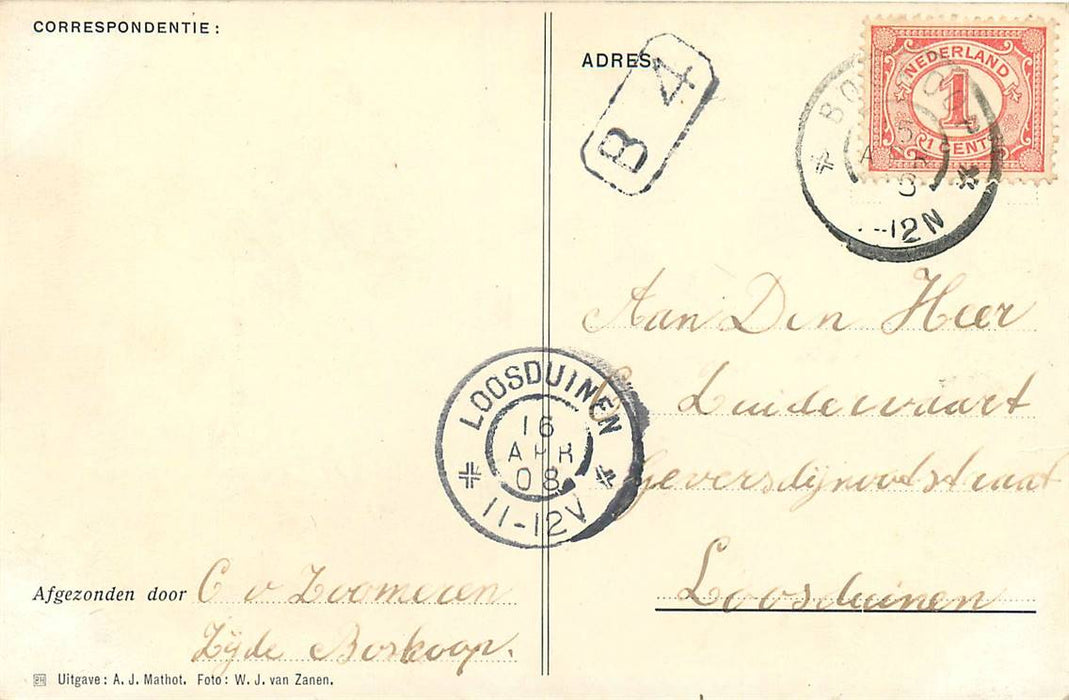 CORRESPONDENTIE:
ADRES
B 4
NEDERLAND
1
1 CENT
12N
Aan Den Heer
Zuiderwaart
Geversdijnootstraat
Loosduinen
LOOSDUINEN
16
APR
08
11-12V
Afgezonden door C v Zoomeren
Zijde Boskoop.
Uitgave: A. J. Mathot. Foto: W. J. van Zanen.